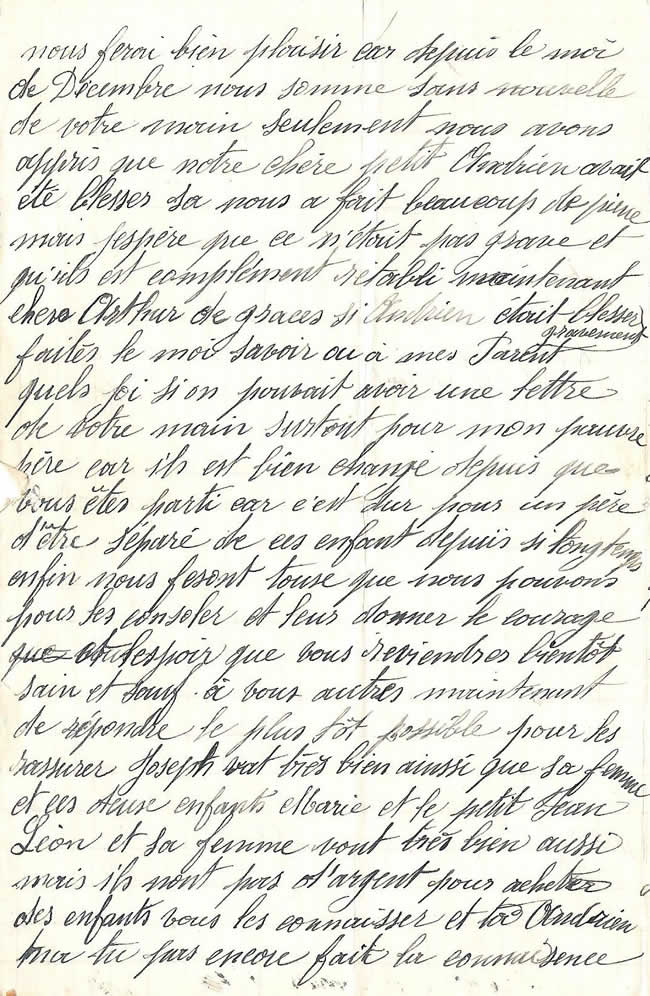 nous ferai bien plaisir car depuis le moi
de Décembre nous somme sans nouvelle
de votre main seulement nous avons
appris que notre chère petit Andrien avait
été blesser sa nous a fait beaucoup de piene
mais j'espère que ce n'était pas grave et
qu'ils est complément rétabli maintenant
chere Arthur de graces si Andrien était blesser
gravement
faites le moi savoir ou à mes Parent
quels joi si on pouvait avoir une lettre
de votre main surtout pour mon pauvre
père car ils est bien changé depuis que
vous êtes parti car c'est dur pour un père
d'être séparé de ces enfant depuis si longtemps
enfin nous fesont touse que nous pouvons
pour les consoler et leur donner le courage
que et l'espoir que vous reviendres bientôt
sain et sauf à vous autres maintenant
de répondre le plus tôt possible pour les
rassurer Joseph vat très bien ainssi que sa femme
et ces deuse enfants Marie et le petit Jean
Léon et sa femme vont très bien aussi
mais ils nont pas d'argent pour acheter
des enfants vous les connaisser et toi Andrien
na tu pas encore fait la connaisence